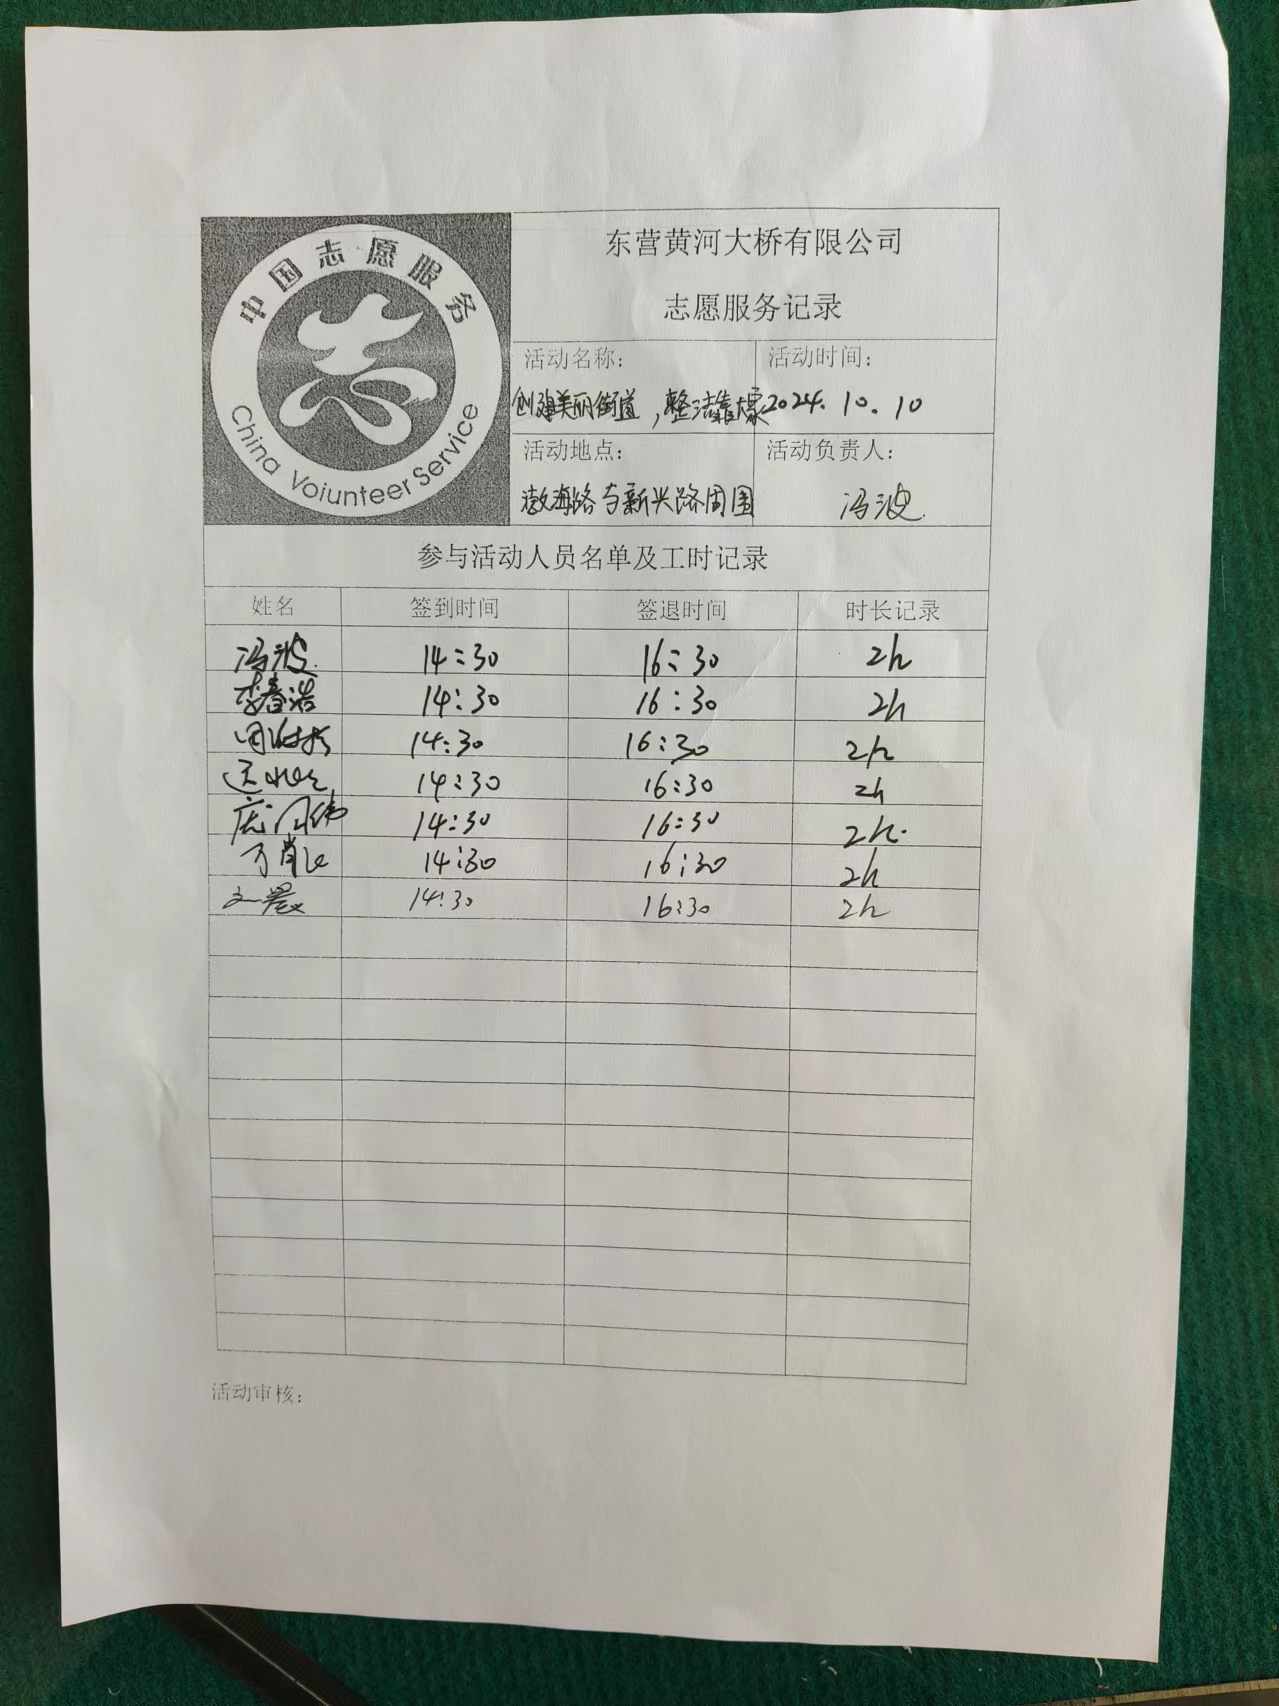 中国志愿服务
China Voiunteer Service
东营黄河大桥有限公司
志愿服务记录
活动名称：
活动时间：
创建美丽街道，整洁靠大家
2024.10.10
活动地点：
活动负责人：
渤海路与新兴路周围
冯波
参与活动人员名单及工时记录
姓名 签到时间 签退时间 时长记录
冯波 14:30 16:30 2h
李春浩 14:30 16:30 2h
14:30 16:30 2h
14:30 16:30 2h
14:30 16:30 2h
14:30 16:30 2h
14:30 16:30 2h
活动审核：